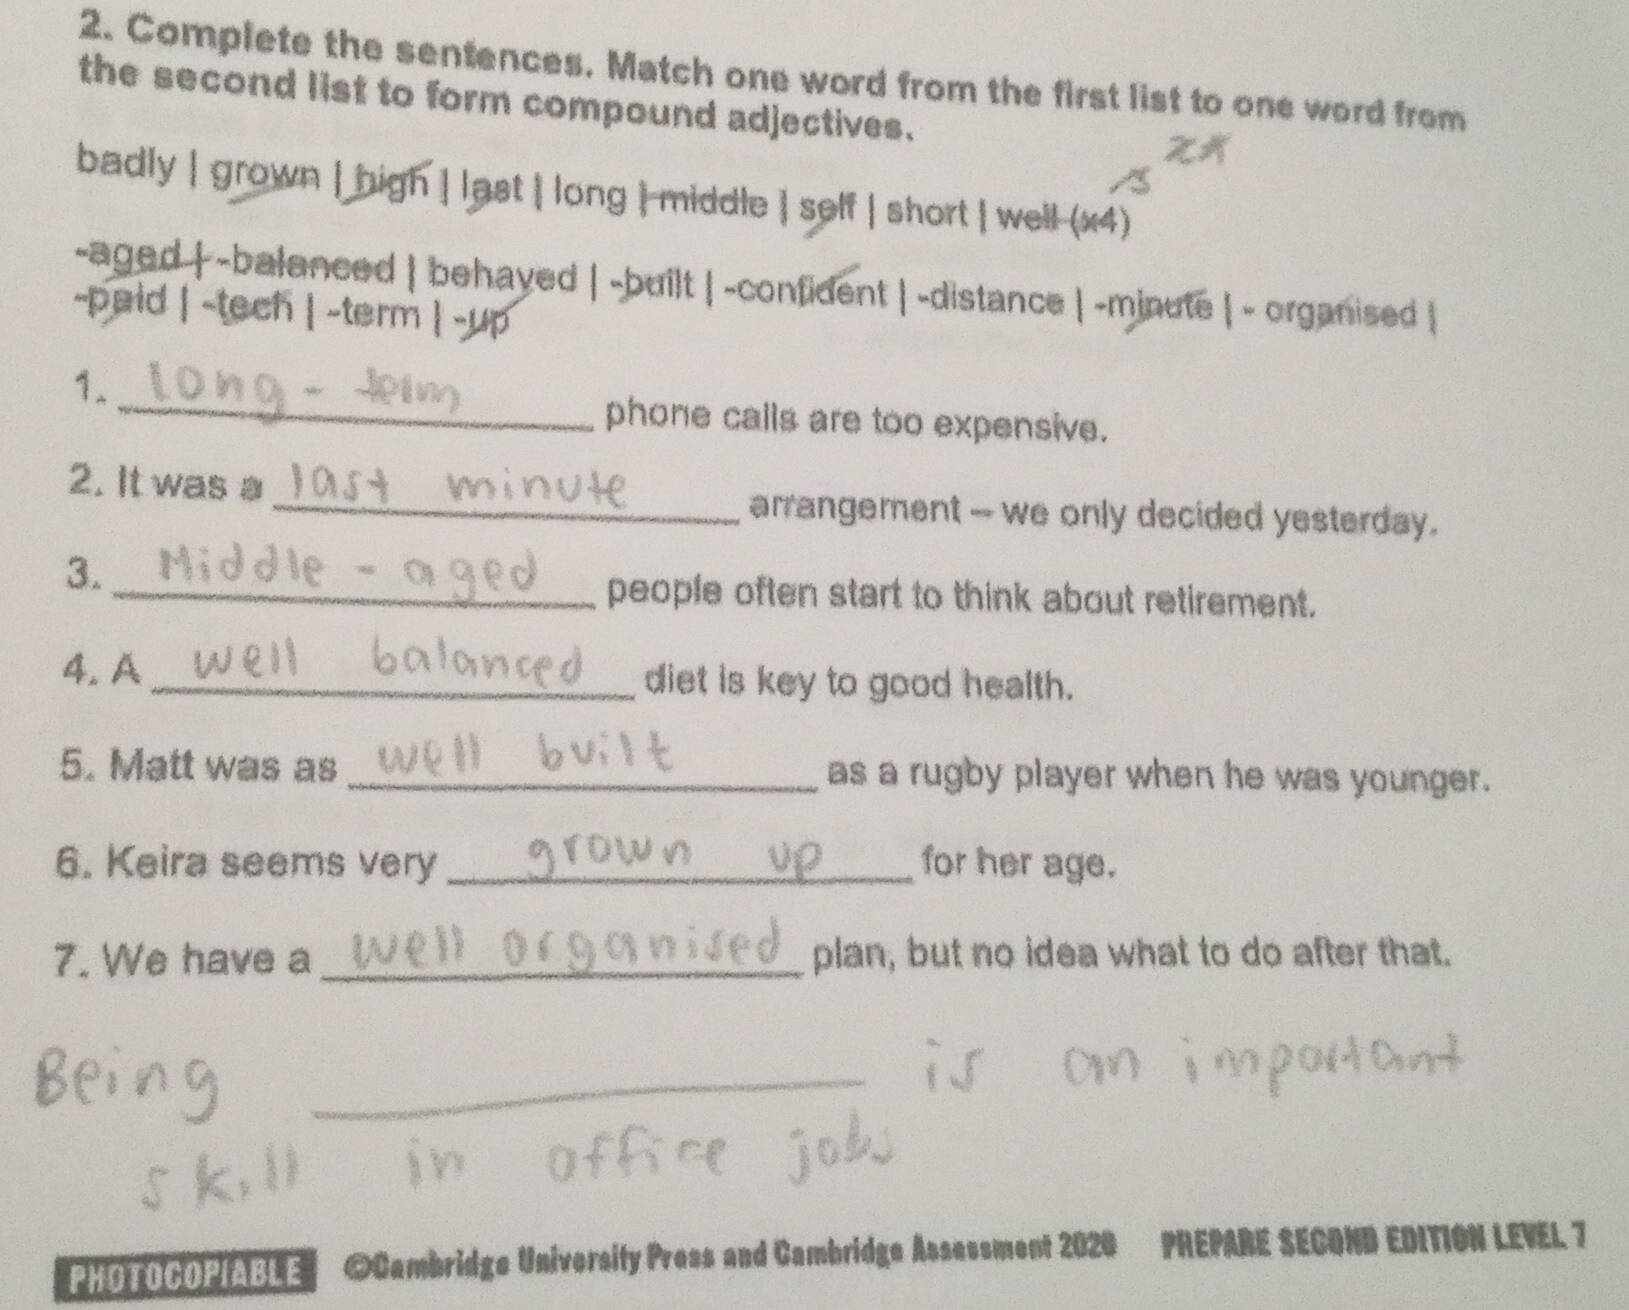 2. Complete the sentences. Match one word from the first list to one word from
the second list to form compound adjectives.
badly | grown | high | last | long | middle | self | short | well (x4)
-aged | -balanced | behaved | -built | -confident | -distance | -minute | - organised |
-paid | -tech | -term | -up
1. long - term phone calls are too expensive.
2. It was a last minute arrangement – we only decided yesterday.
3. Middle - aged people often start to think about retirement.
4. A well balanced diet is key to good health.
5. Matt was as well built as a rugby player when he was younger.
6. Keira seems very grown up for her age.
7. We have a well organised plan, but no idea what to do after that.
Being ____ is an important
skill in office jobs
PHOTOCOPIABLE ©Cambridge University Press and Cambridge Assessment 2020 PREPARE SECOND EDITION LEVEL 7